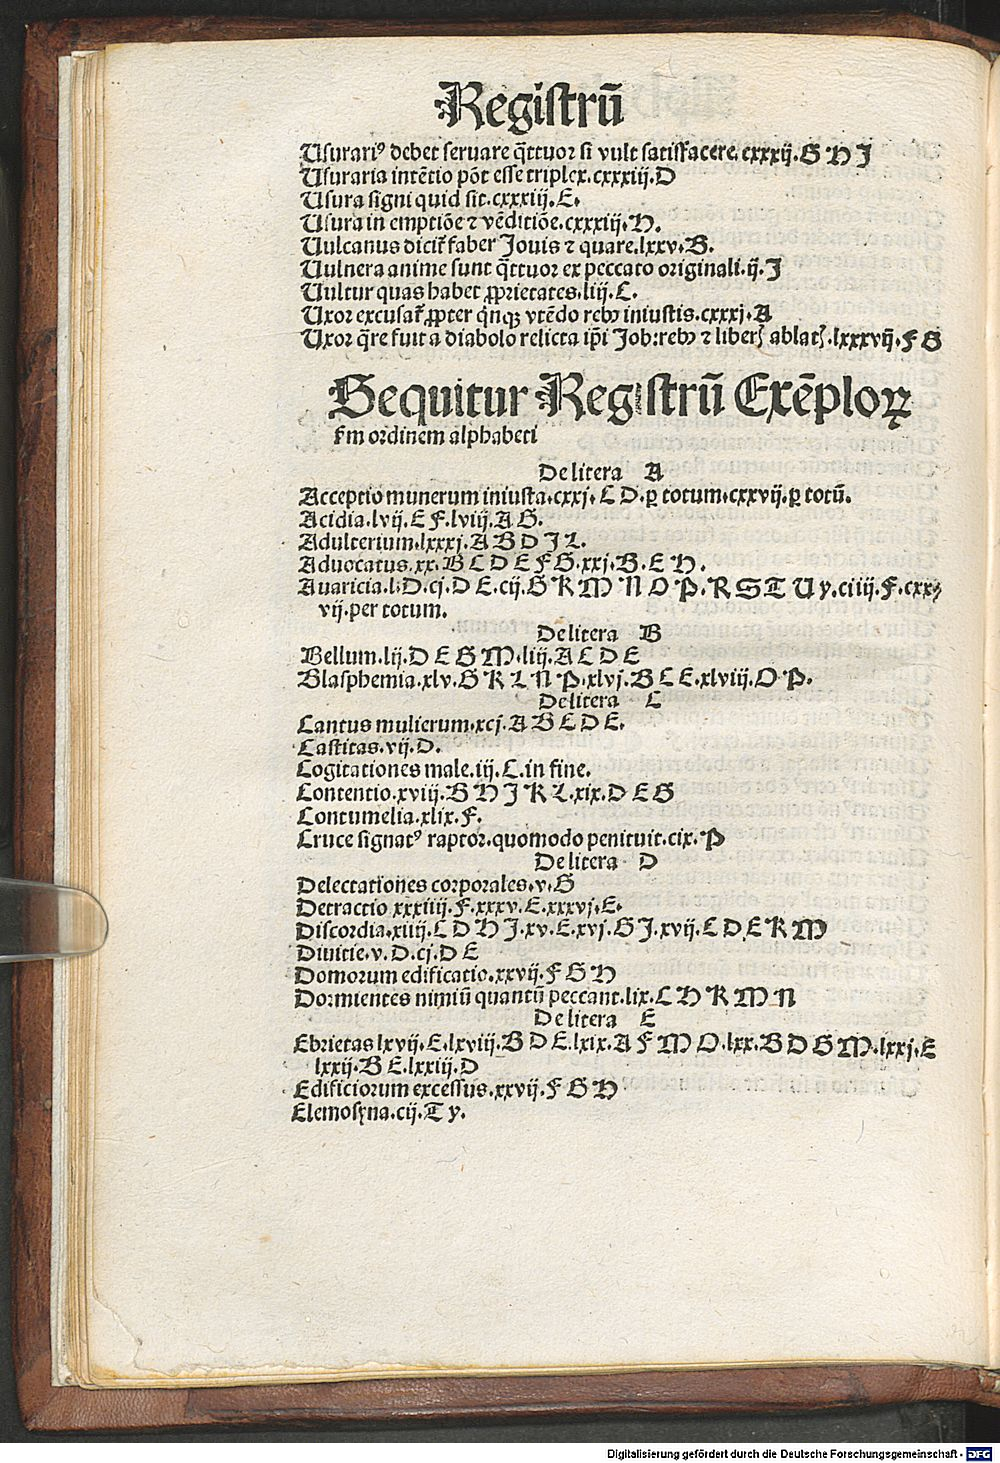 Registrū
Usurariꝰ debet seruare q̄ttuor si vult satisfacere.cxxxij.G H I
Usuraria intētio pōt esse triplex.cxxxiij.D
Usura signi quid sit.cxxxiij.E.
Usura in emptiōe ⁊ vēditiōe.cxxxiij.H.
Uulcanus dicit̄ faber Iouis ⁊ quare.lxxv.B.
Uulnera anime sunt q̄ttuor ex peccato originali.ij.I
Uultur quas habet ꝓprietates.liij.C.
Uxor excusat̄ ꝓpter qͥnqꝫ vtēdo rebꝰ iniustis.cxxxj.A
Uxor q̄re fuit a diabolo relicta ip̄i Job:rebꝰ ⁊ liberꝭ ablatꝭ.lxxxvij.F G
Sequitur Registrū Exēploꝝ
ẜm ordinem alphabeti
De litera A
Acceptio munerum iniusta.cxxj.C D.ꝑ totum.cxxvij.ꝑ totū.
Acidia.lvij.E F.lviij.A G.
Adulterium.lxxxj.A B D I L.
Aduocatus.xx.B C D E F G.xxj.B.E H.
Auaricia.l.D.cj.D E.cij.G K M N O P.R S T U y.ciiij.F.cxx⸗
vij.per totum.
De litera B
Bellum.lij.D E G M.liij.A C D E
Blasphemia.xlv.G K L N P.xlvj.B C E.xlviij.O P.
De litera C
Cantus mulierum.xcj.A B C D E.
Castitas.vij.D.
Cogitationes male.iij.C.in fine.
Contentio.xviij.B H I K L.xix.D E G
Contumelia.xlix.F.
Cruce signatꝰ raptor.quomodo penituit.cix.P
De litera D
Delectationes corporales.v.G
Detractio xxxiiij.F.xxxv.E.xxxvj.E.
Discordia.xiiij.C D H I.xv.E.xvj.G I.xvij.C D E K M
Diuitie.v.D.cj.D E
Domorum edificatio.xxvij.F G H
Dormientes nimiū quantū peccant.lix.C H K M N
De litera E
Ebrietas lxvij.E.lxviij.B D E.lxix.A F M O.lxx.B D G M.lxxj.E
lxxij.B E.lxxiij.D
Edificiorum excessus.xxvij.F G H
Elemosyna.cij.T y.
Digitalisierung gefördert durch die Deutsche Forschungsgemeinschaft - DFG